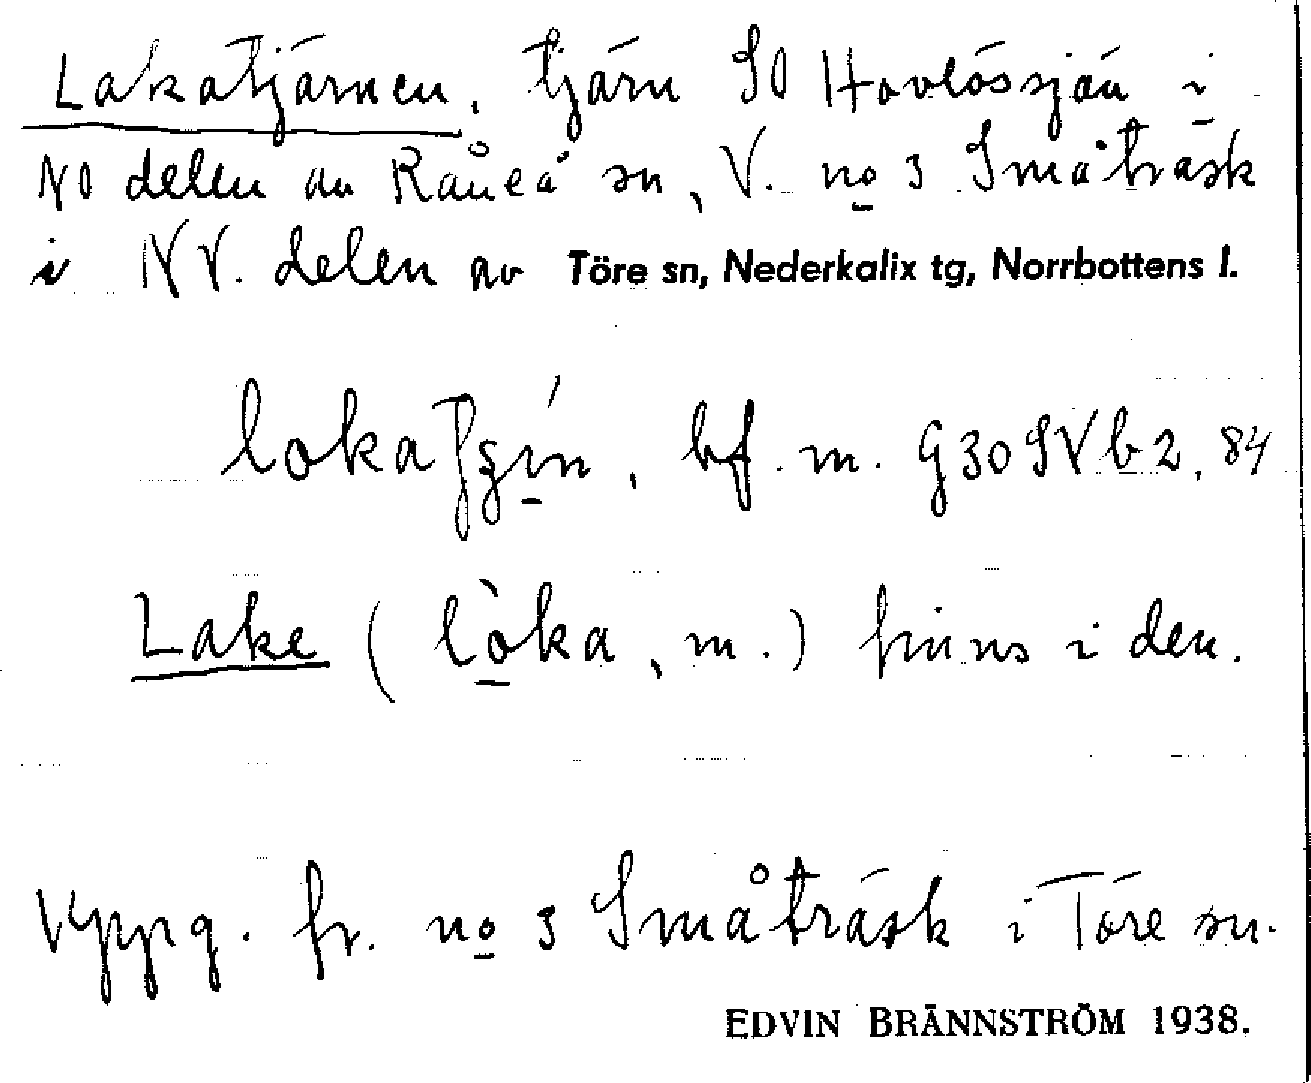 Lakatjärnen, tjärn SO Hovlössjön i
NO delen av Råneå sn, V. no 3 Småträsk
i NV. delen av Töre sn, Nederkalix tg, Norrbottens l.
bf. m. G30SVb2, 84
Lake (lòka, m.) finns i den.
Uppg. fr. no 3 Småträsk i Töre sn.
EDVIN BRÄNNSTRÖM 1938.